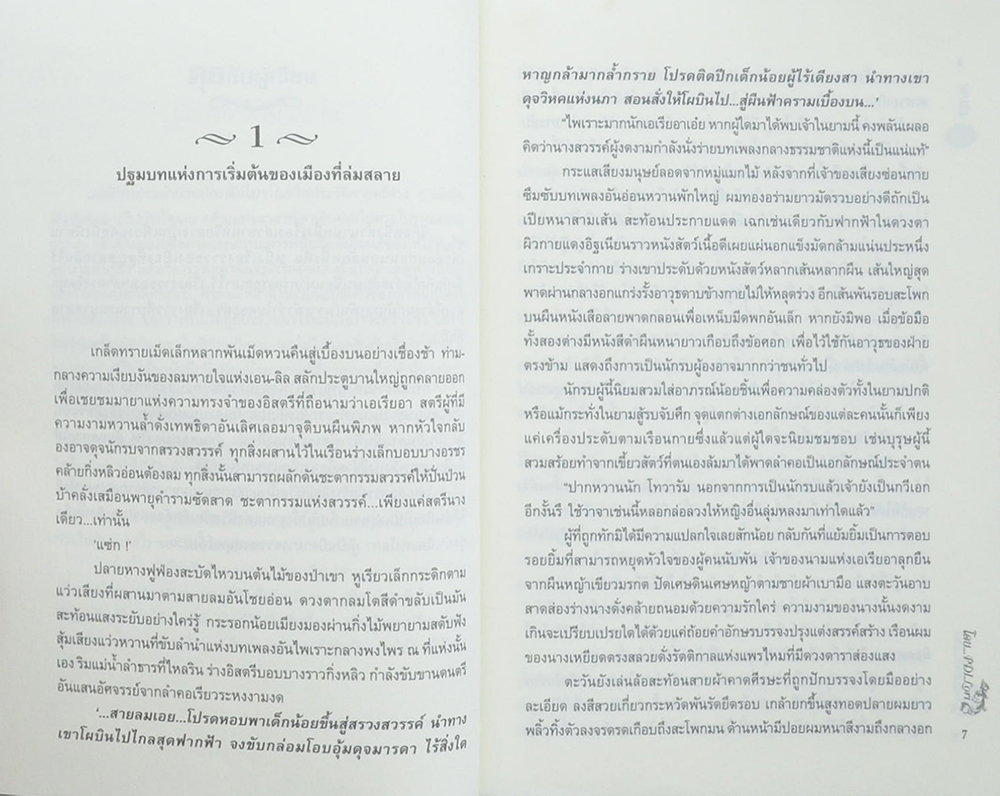 1
ปฐมบทแห่งการเริ่มต้นของเมืองที่ล่มสลาย
เกล็ดทรายเม็ดเล็กหลากพันเม็ดหวนคืนสู่เบื้องบนอย่างเชื่องช้า ท่าม-
กลางความเงียบงันของลมหายใจแห่งเอน-ลิล สลักประตูบานใหญ่ถูกคลายออก
เพื่อเชยชมมายาแห่งความทรงจำของอิสตรีที่ถือนามว่าเอเรียอา สตรีผู้ที่มี
ความงามหวานล้ำดั่งเทพธิดาอันเลิศเลอมาจุติบนผืนพิภพ หากหัวใจกลับ
องอาจดุจนักรบจากสรวงสวรรค์ ทุกสิ่งผสานไว้ในเรือนร่างเล็กบอบบางอรชร
คล้ายกิ่งหลิวอ่อนต้องลม ทุกสิ่งนั้นสามารถผลักดันชะตากรรมสวรรค์ให้ปั่นป่วน
บ้าคลั่งเสมือนพายุคำรามซัดสาด ชะตากรรมแห่งสวรรค์...เพียงแค่สตรีนาง
เดียว...เท่านั้น
'แซ่ก !'
ปลายหางฟูฟ่องสะบัดไหวบนต้นไม้ของป่าเขา หูเรียวเล็กกระดิกตาม
แว่วเสียงที่ผสานมาตามสายลมอันโชยอ่อน ดวงตากลมโตสีดำขลับเป็นมัน
สะท้อนแสงระยับอย่างใคร่รู้ กระรอกน้อยเมียงมองผ่านกิ่งไม้พยายามสดับฟัง
สุ้มเสียงแว่วหวานที่ขับลำนำแห่งบทเพลงอันไพเราะกลางพงไพร ณ ที่แห่งนั้น
เอง ริมแม่น้ำลำธารที่ไหลริน ร่างอิสตรีบอบบางราวกิ่งหลิว กำลังขับขานดนตรี
อันแสนอัศจรรย์จากลำคอเรียวระหงงามงด
'...สายลมเอย...โปรดหอบพาเด็กน้อยขึ้นสู่สรวงสวรรค์ นำทาง
เขาโผบินไปไกลสุดฟากฟ้า จงขับกล่อมโอบอุ้มดุจมารดา ไร้สิ่งใด
หาญกล้ามากล้ำกราย โปรดติดปีกเด็กน้อยผู้ไร้เดียงสา นำทางเขา
ดุจวิหคแห่งนภา สอนสั่งให้โผบินไป...สู่ผืนฟ้าครามเบื้องบน...'
"ไพเราะมากนักเอเรียอาเอ๋ย หากผู้ใดมาได้พบเจ้าในยามนี้ คงพลันเผลอ
คิดว่านางสวรรค์ผู้งดงามกำลังนั่งร่ายบทเพลงกลางธรรมชาติแห่งนี้เป็นแน่แท้"
กระแสเสียงมนุษย์ลอดจากหมู่แมกไม้ หลังจากที่เจ้าของเสียงซ่อนกาย
ซึมซับบทเพลงอันอ่อนหวานพักใหญ่ ผมทองอร่ามยาวมัดรวบอย่างดีถักเป็น
เปียหนาสามเส้น สะท้อนประกายแดด เฉกเช่นเดียวกับฟากฟ้าในดวงตา
ผิวกายแดงอิฐเนียนราวหนังสัตว์เนื้อดีเผยแผ่นอกแข็งมัดกล้ามแน่นประหนึ่ง
เกราะประจำกาย ร่างเขาประดับด้วยหนังสัตว์หลากเส้นหลากผืน เส้นใหญ่สุด
พาดผ่านกลางอกแกร่งรั้งอาวุธดาบข้างกายไม่ให้หลุดร่วง อีกเส้นพันรอบสะโพก
บนผืนหนังเสือลายพาดกลอนเพื่อเหน็บมีดพกอันเล็ก หากยังมิพอ เมื่อข้อมือ
ทั้งสองต่างมีหนังสีดำผืนหนายาวเกือบถึงข้อศอก เพื่อไว้ใช้กันอาวุธของฝ่าย
ตรงข้าม แสดงถึงการเป็นนักรบผู้องอาจมากกว่าชนทั่วไป
นักรบผู้นี้นิยมสวมใส่อาภรณ์น้อยชิ้นเพื่อความคล่องตัวทั้งในยามปกติ
หรือแม้กระทั่งในยามสู้รบจับศึก จุดแตกต่างเอกลักษณ์ของแต่ละคนนั้นก็เพียง
แค่เครื่องประดับตามเรือนกายซึ่งแล้วแต่ผู้ใดจะนิยมชมชอบ เช่นบุรุษผู้นี้
สวมสร้อยทำจากเขี้ยวสัตว์ที่ตนเองล้มมาได้พาดลำคอเป็นเอกลักษณ์ประจำตน
"ปากหวานนัก โทวารัม นอกจากการเป็นนักรบแล้วเจ้ายังเป็นกวีเอก
อีกงั้นรึ ใช้วาจาเช่นนี้หลอกล่อลวงให้หญิงอื่นลุ่มหลงมาเท่าใดแล้ว"
ผู้ที่ถูกทักมิได้มีความแปลกใจเลยสักน้อย กลับกันที่แย้มยิ้มเป็นการตอบ
รอยยิ้มที่สามารถหยุดหัวใจของผู้คนนับพัน เจ้าของนามแห่งเอเรียอาลุกยืน
จากผืนหญ้าเขียวมรกต ปัดเศษดินเศษหญ้าตามชายผ้าเบามือ แสงตะวันอาบ
สาดส่องร่างนางดั่งคล้ายถนอมด้วยความรักใคร่ ความงามของนางนั้นงดงาม
เกินจะเปรียบเปรยใดได้ด้วยแค่ถ้อยคำอักษรบรรจงปรุงแต่งสรรค์สร้าง เรือนผม
ของนางเหยียดตรงสลวยดั่งรัตติกาลแห่งแพรไหมที่มีดวงดาราส่องแสง
ตะวันยังเล่นล้อสะท้อนสายผ้าคาดศีรษะที่ถูกปักบรรจงโดยมืออย่าง
ละเอียด ลงสีสวยเกี่ยวกระหวัดพันรัดยึดรอบ เกล้ายกขึ้นสูงทอดปลายผมยาว
พลิ้วทิ้งตัวลงจรดรดเกือบถึงสะโพกมน ด้านหน้ามีปอยผมหนาสีงามถึงกลางอก
7